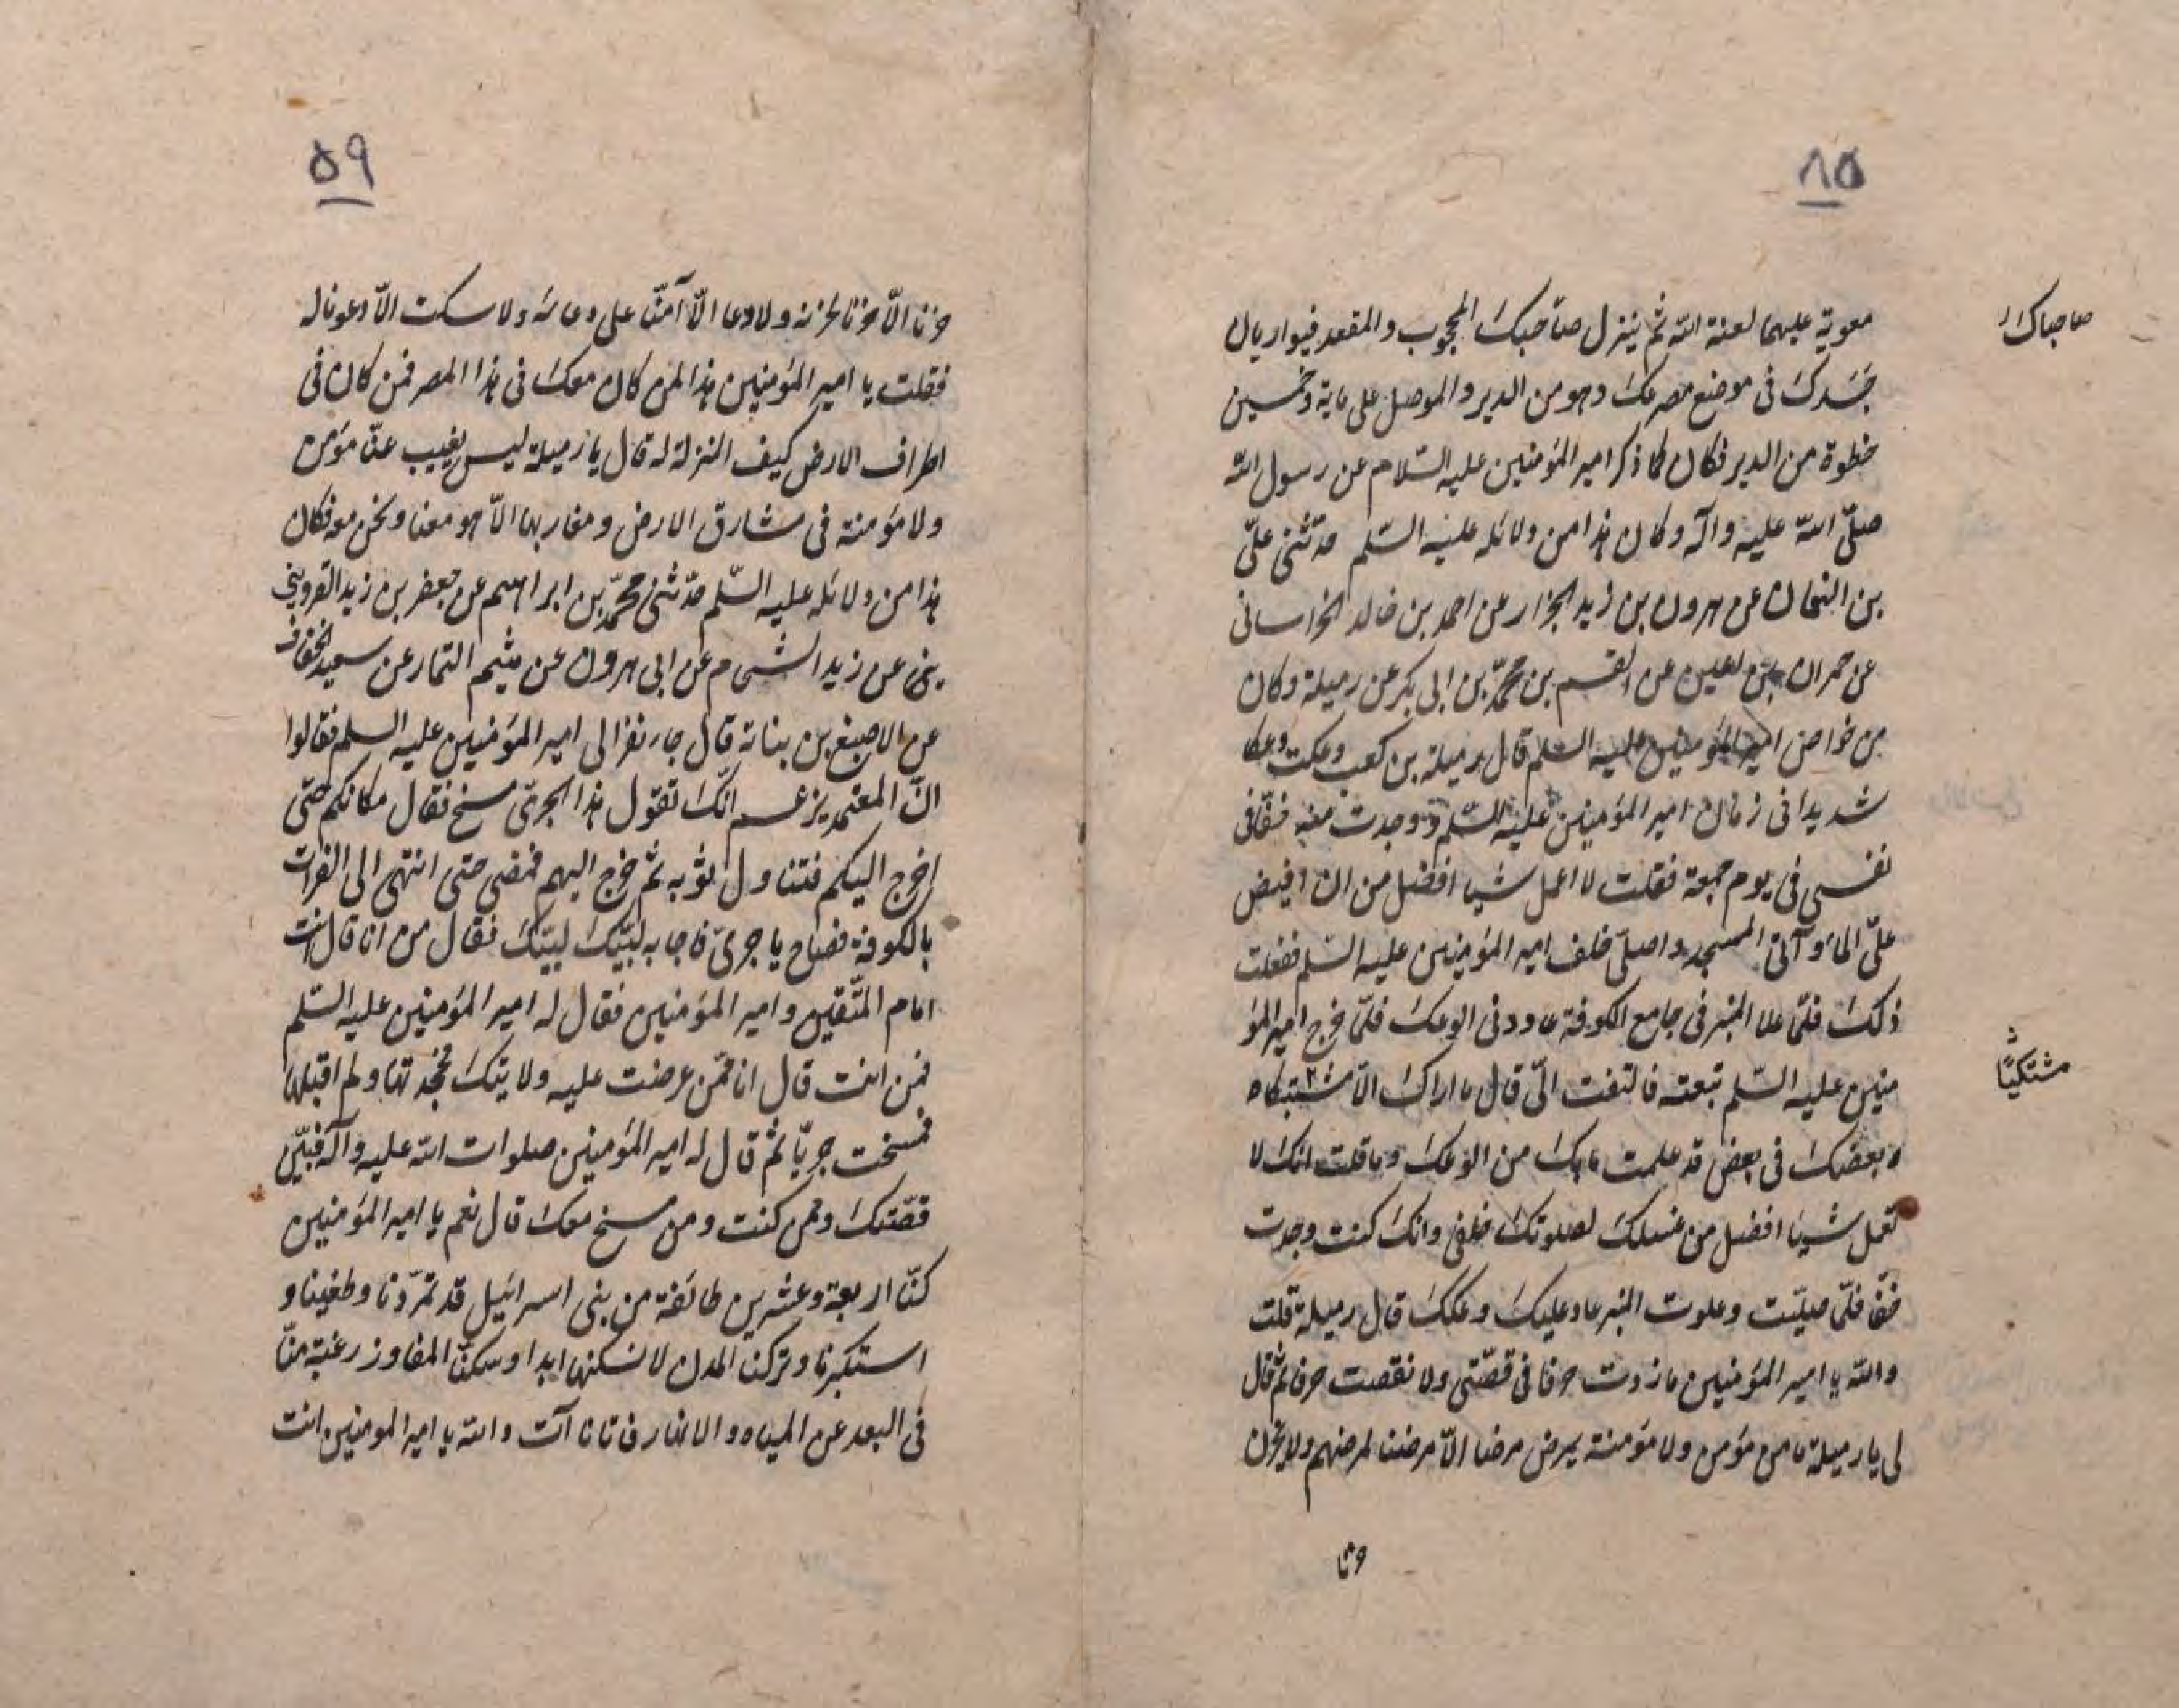 ۸۵
صاحباك
معوية عليهما لعنة الله ثم ينزل صاحبك المحجوب والمقعد فيواريان
جسدك فى موضع مصرعك وهو من الدير والموصل على ماية وخمسين
خطوة من الدير فكان كما ذكر امير المؤمنين عليه السلام عن رسول الله
صلّى الله عليه وآله وكان هذا من دلائله عليه السّلم حدّثنى علىّ
بن النعمان عن هرون بن زيد الجزار عن احمد بن خالد الخراسانى
عن حمران بن اعين عن القسم بن محمّد بن ابى بكر عن رميلة وكان
من خواص امير المؤمنين عليه السلم قال رميلة بن كعب وعكت وعكا
شديدا فى زمان امير المؤمنين عليه السّلم ووجدت منه خفّا فى
نفسى فى يوم جمعة فقلت لا اعمل شيا افضل من ان افيض
علىّ الماء وآتى المسجد واصلّى خلف امير المؤمنين عليه السّلم ففعلت
ذلك فلمّا علا المنبر فى جامع الكوفة عاودنى الوعك فلمّا خرج امير المؤ
منين عليه السّلم تبعته فالتفت الىّ قال ما اراك الّا مشتبكاه
مشتكيًا
بعضك فى بعض قد علمت ما بك من الوعك وما قلت انك لا
تعمل شيئا افضل من غسلك لصلوتك خلفى وانك كنت وجدت
خفّا فلمّا صليّت وعلوت المنبر عاد عليك وعكك قال رميلة قلت
والله يا امير المؤمنين ما زدت حرفا فى قصّتى ولا نقصت حرفا ثم قال
لى يا رميلة ما من مؤمن ولا مؤمنة يمرض مرضا الّا مرضنا لمرضهم ولا يحزن
حزنا
۵۹
حزنا الّا حزنا لحزنه ولا دعا الّا آمنّا على دعائه ولا سكت الّا دعونا له
فقلت يا امير المؤمنين هذا لمن كان معك فى هذا المصر فمن كان فى
اطراف الارض كيف المنزلة له قال يا رميلة ليس يغيب عنّا مؤمن
ولا مؤمنة فى مشارق الارض ومغاربها الّا هو معنا ونحن معه فكان
هذا من دلائله عليه السّلم حدّثنى محمّد بن ابراهيم عن جعفر بن زيد القزوينى
عن زيد الشحام عن ابى هرون عن ميثم التمار عن سعيد الخفاف
عن الاصبغ بن بناتة قال جاء نفر الى امير المؤمنين عليه السلم فقالوا
انّ المعتمد يزعم انّك تقول هذا الجرىّ مسخ فقال مكانكم حتّى
اخرج اليكم فتناول ثوبه ثم خرج اليهم فمضى حتى انتهى الى الفرات
بالكوفة فصاح يا جرىّ فاجابه لبيّك لبيّك فقال من انا قال انت
امام المتّقين وامير المؤمنين فقال له امير المؤمنين عليه السّلم
فمن انت قال انا ممّن عرضت عليه ولايتك فجحدتها ولم اقبلها
فمسخت جريّا ثم قال له امير المؤمنين صلوات الله عليه وآله فبيّن
قصّتك وممن كنت ومن مسخ معك قال نعم يا امير المؤمنين
كنّا اربعة وعشرين طائفة من بنى اسرائيل قد تمرّدنا وطغينا و
استكبرنا وتركنا المدن لا نسكنها ابدا وسكنّا المفاوز رغبة منّا
فى البعد عن المياه والانهار فاتانا آت والله يا امير المومنين انت